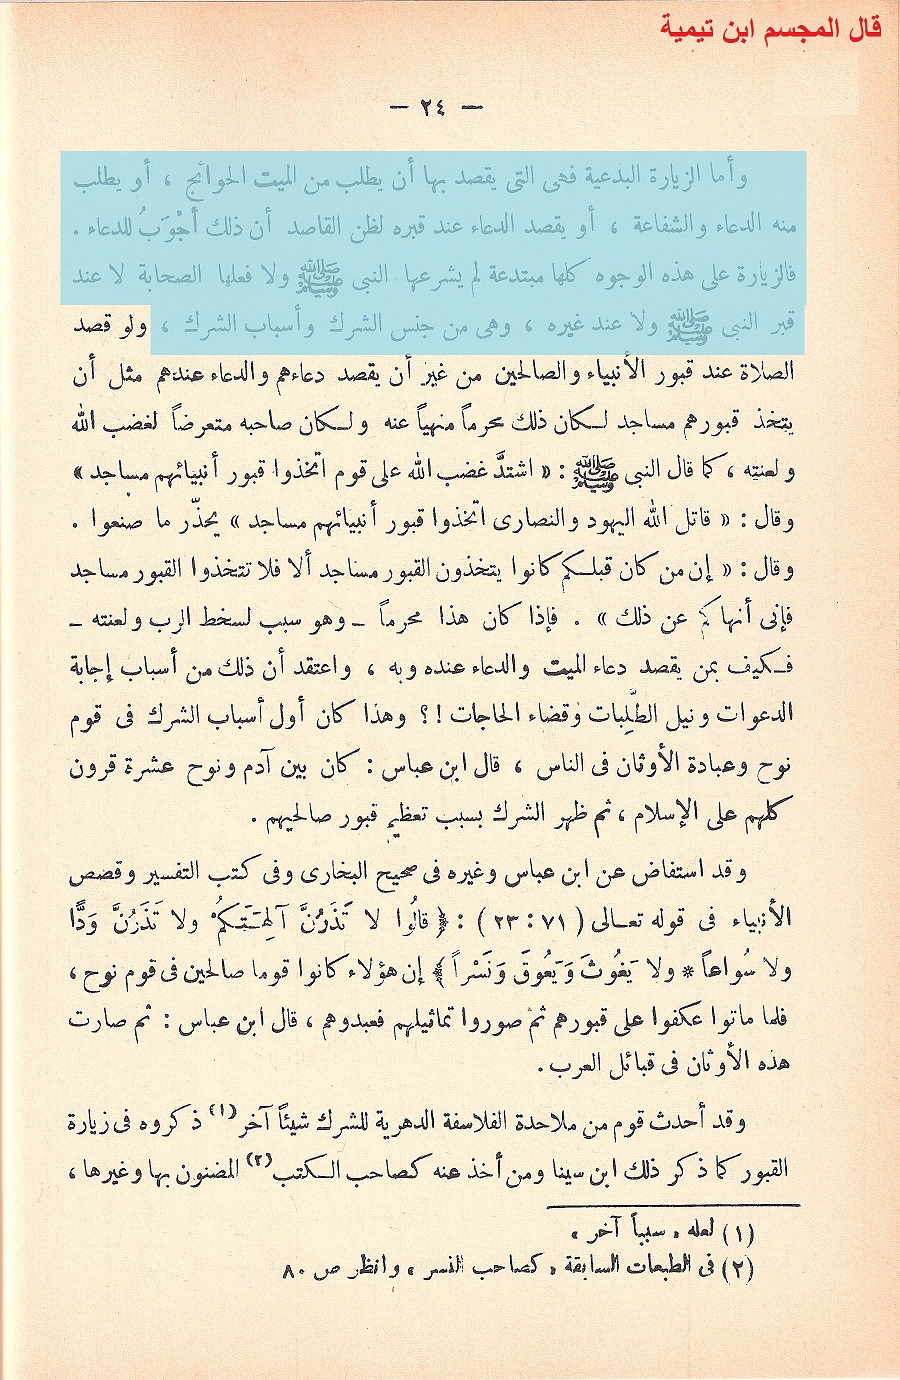 قال المجسم ابن تيمية
— ٢٤ —
وأما الزيارة البدعية فهى التى يقصد بها أن يطلب من الميت الحوائج ، أو يطلب
منه الدعاء والشفاعة ، أو يقصد الدعاء عند قبره لظن القاصد أن ذلك أَجْوَبُ للدعاء .
فالزيارة على هذه الوجوه كلها مبتدعة لم يشرعها النبى ﷺ ولا فعلها الصحابة لا عند
قبر النبى ﷺ ولا عند غيره ، وهى من جنس الشرك وأسباب الشرك ، ولو قصد
الصلاة عند قبور الأنبياء والصالحين من غير أن يقصد دعاءهم والدعاء عندهم مثل أن
يتخذ قبورهم مساجد لكان ذلك محرماً منهياً عنه ولكان صاحبه متعرضاً لغضب الله
ولعنته ، كما قال النبى ﷺ : « اشتدَّ غضب الله على قوم اتخذوا قبور أنبيائهم مساجد »
وقال : « قاتل الله اليهود والنصارى اتخذوا قبور أنبيائهم مساجد » يحذّر ما صنعوا .
وقال : « إن من كان قبلكم كانوا يتخذون القبور مساجد ألا فلا تتخذوا القبور مساجد
فإنى أنهاكم عن ذلك » . فإذا كان هذا محرماً ــ وهو سبب لسخط الرب ولعنته ــ
فكيف بمن يقصد دعاء الميت والدعاء عنده وبه ، واعتقد أن ذلك من أسباب إجابة
الدعوات ونيل الطَّلِبات وقضاء الحاجات !؟ وهذا كان أول أسباب الشرك فى قوم
نوح وعبادة الأوثان فى الناس ، قال ابن عباس : كان بين آدم ونوح عشرة قرون
كلهم على الإسلام ، ثم ظهر الشرك بسبب تعظيم قبور صالحيهم .
وقد استفاض عن ابن عباس وغيره فى صحيح البخارى وفى كتب التفسير وقصص
الأنبياء فى قوله تعالى ( ٧١ : ٢٣ ) : ﴿ قالُوا لا تَذَرُنَّ آلِهَتَكُمْ ولا تَذَرُنَّ وَدًّا
ولا سُواعاً * ولا يَغُوثَ وَيَعُوقَ وَنَسْراً ﴾ إن هؤلاء كانوا قوما صالحين فى قوم نوح ،
فلما ماتوا عكفوا على قبورهم ثم صوروا تماثيلهم فعبدوهم ، قال ابن عباس : ثم صارت
هذه الأوثان فى قبائل العرب .
وقد أحدث قوم من ملاحدة الفلاسفة الدهرية للشرك شيئاً آخر (١) ذكروه فى زيارة
القبور كما ذكر ذلك ابن سينا ومن أخذ عنه كصاحب الكتب (٢) المضنون بها وغيرها ،
(١) لعله « سبباً آخر »
(٢) فى الطبعات السابقة « كصاحب النسر » وانظر ص ٨٠